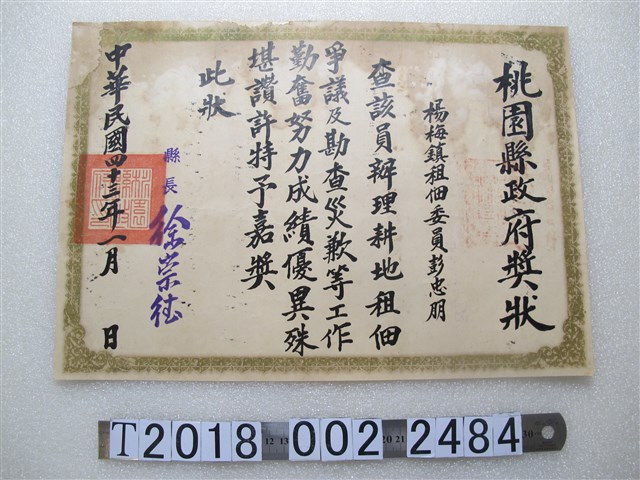 桃園縣政府獎狀
楊梅鎮租佃委員彭忠朋
查該員辦理耕地租佃
爭議及勘查災歉等工作
勤奮努力成績優異殊
堪讚許特予嘉獎
此狀
縣長 徐崇德
中華民國四十三年一月 日
T2018 002 2484